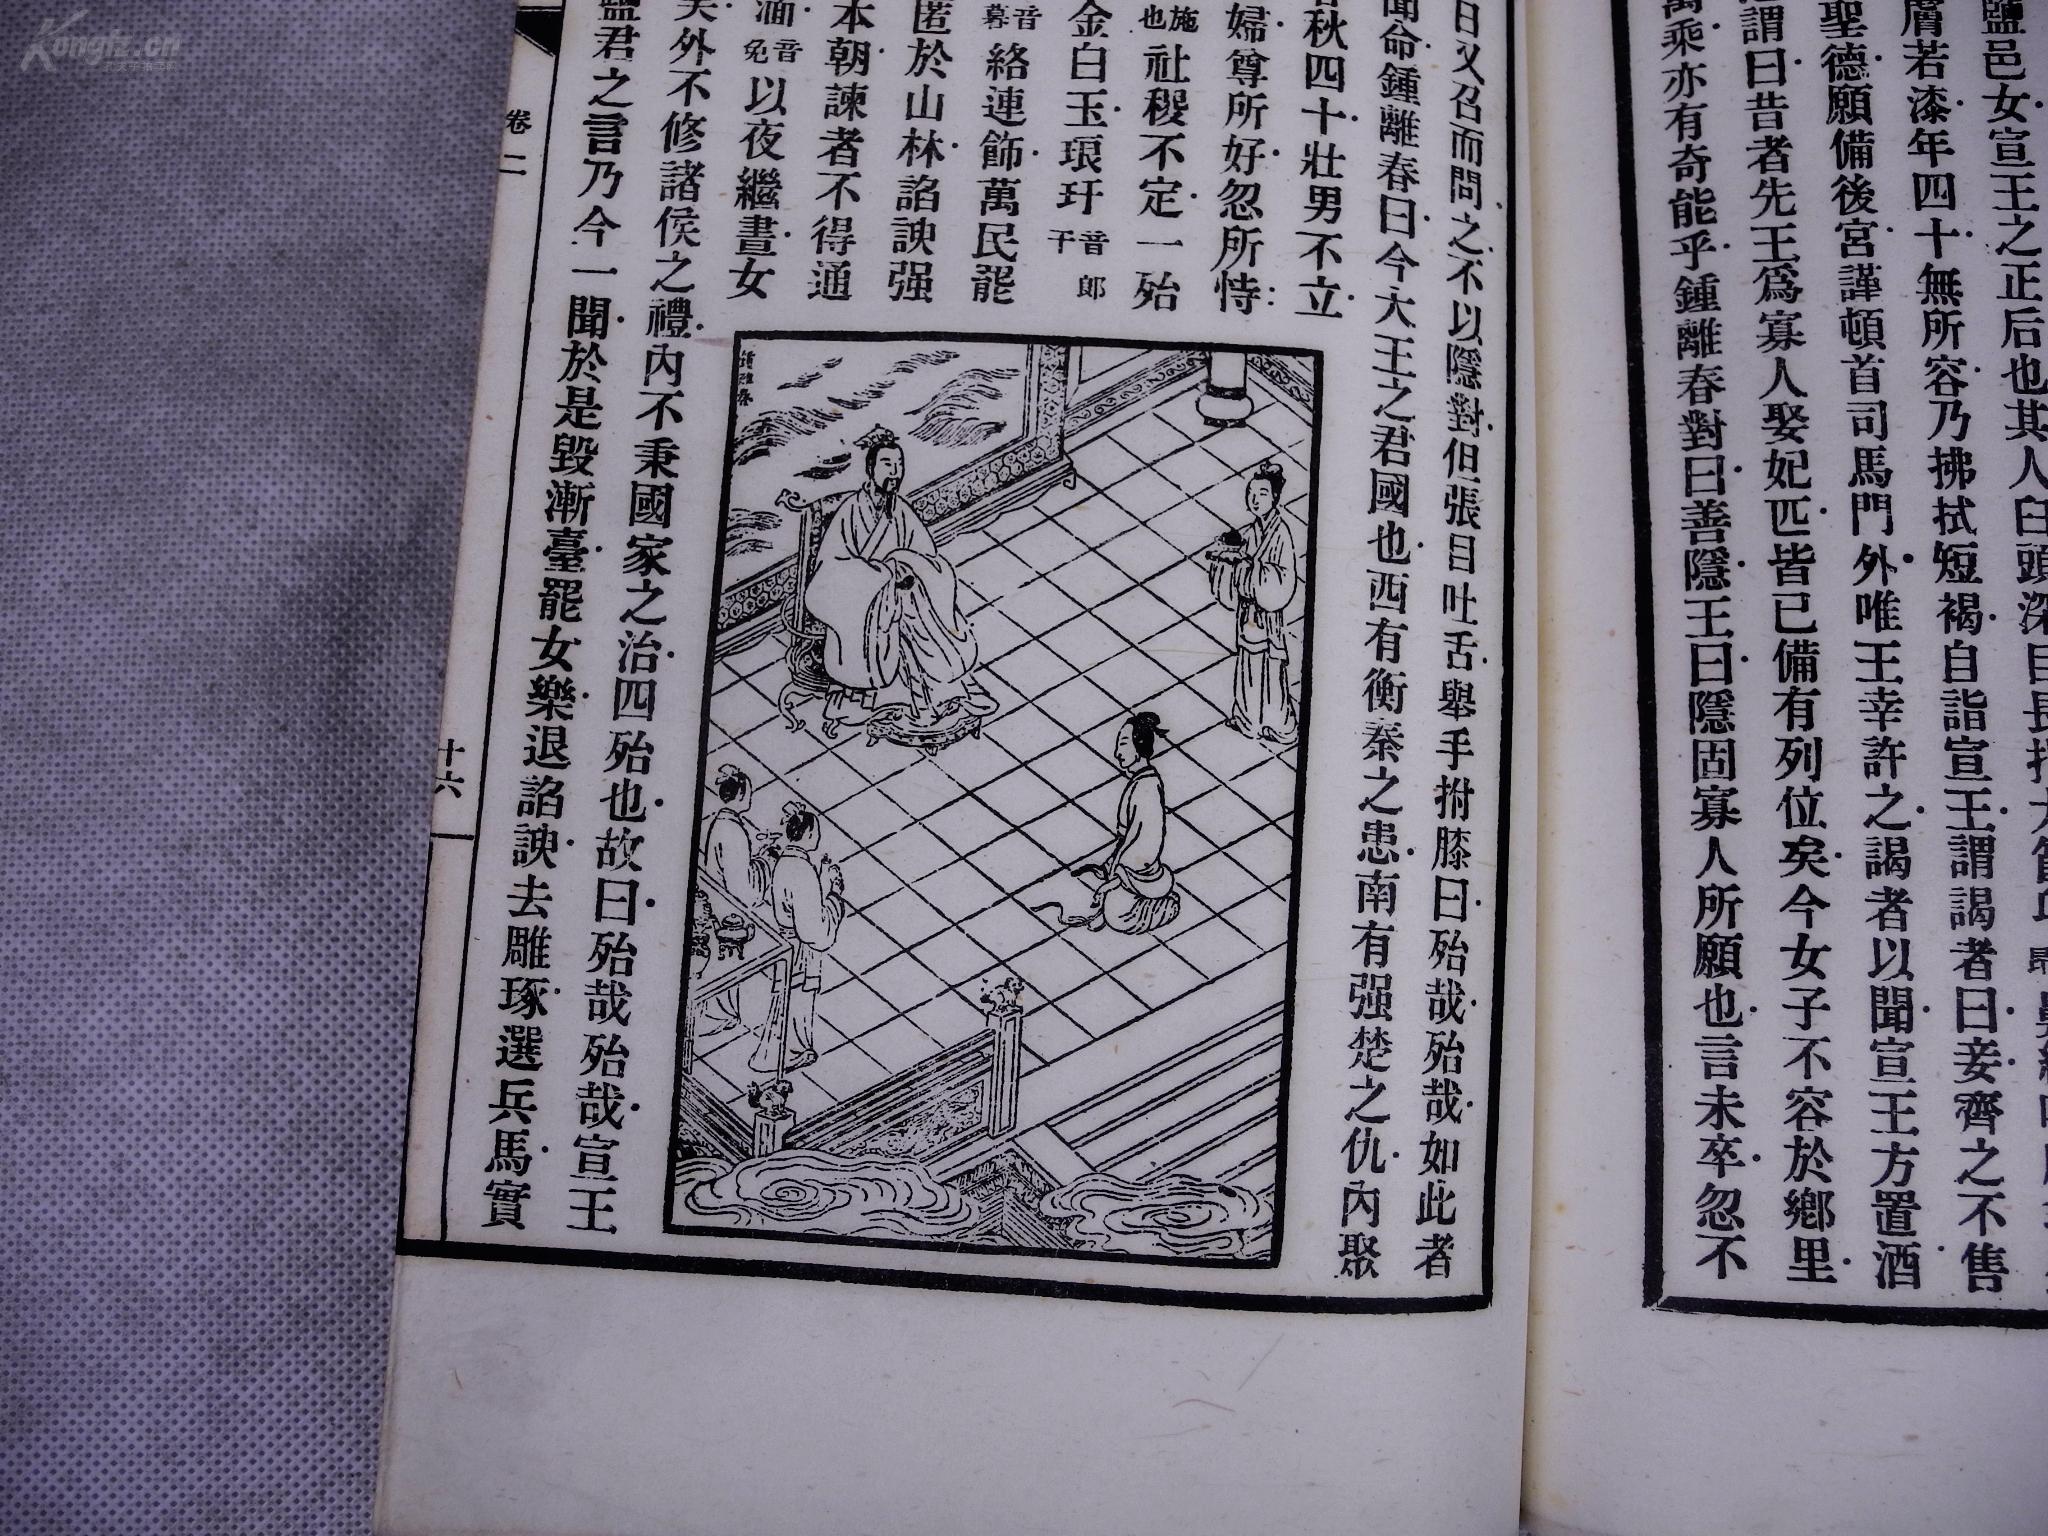 鹽邑女宣王之正后也其人臼頭深目長指大
膚若漆年四十無所容乃拂拭短褐自詣宣王謂謁者曰妾齊之不售
聖德願備後宮謹頓首司馬門外唯王幸許之謁者以聞宣王方置酒
謂曰昔者先王爲寡人娶妃匹皆已備有列位矣今女子不容於鄉里
萬乘亦有奇能乎鍾離春對曰善隱王曰隱固寡人所願也言未卒忽不
日又召而問之不以隱對但張目吐舌舉手拊膝曰殆哉殆哉如此者
聞命鍾離春曰今大王之君國也西有衡秦之患南有强楚之仇內聚
春秋四十壯男不立
婦尊所好忽所恃
施也社稷不定一殆
金白玉琅玕音郎干
音幕絡連飾萬民罷
匿於山林諂諛强
本朝諫者不得通
湎音免以夜繼晝女
矣外不修諸侯之禮內不秉國家之治四殆也故曰殆哉殆哉宣王
鹽君之言乃今一聞於是毀漸臺罷女樂退諂諛去雕琢選兵馬實
鍾離春
卷二
十六
Kongfz.cn